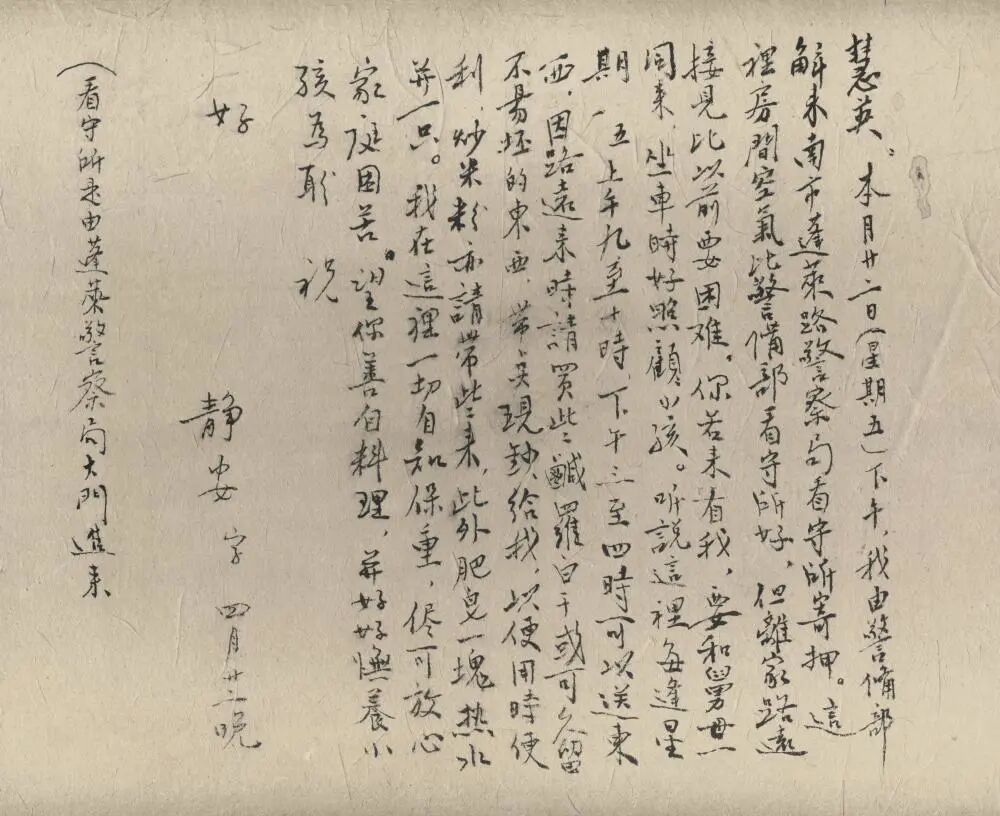 慧英：本月廿二日（星期五）下午，我由警備部
解来南市蓬萊路警察局看守所寄押。這
裡房間空氣比警備部看守所好，但離家路遠
接見比以前要困难。你若来看我，要和舅母一
同来，坐車時好照顧小孩。听說這裡每逢星
期一、五上午九至十時，下午三至四時可以送東
西，因路遠来時請買些鹹羅白干或可久留
不易坯的東西，帶点現鈔給我，以便用時便
利，炒米粉亦請帶些来，此外肥皂一塊热水
并一只。我在這裡一切自知保重，侭可放心
家庭困苦。望你善自料理，并好好撫養小
孩為盼 祝
好
静安 字 四月廿二晚
（看守所是由蓬萊警察局大門進来